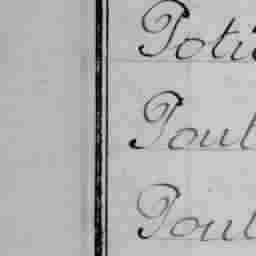 Poti
Poul
Poul